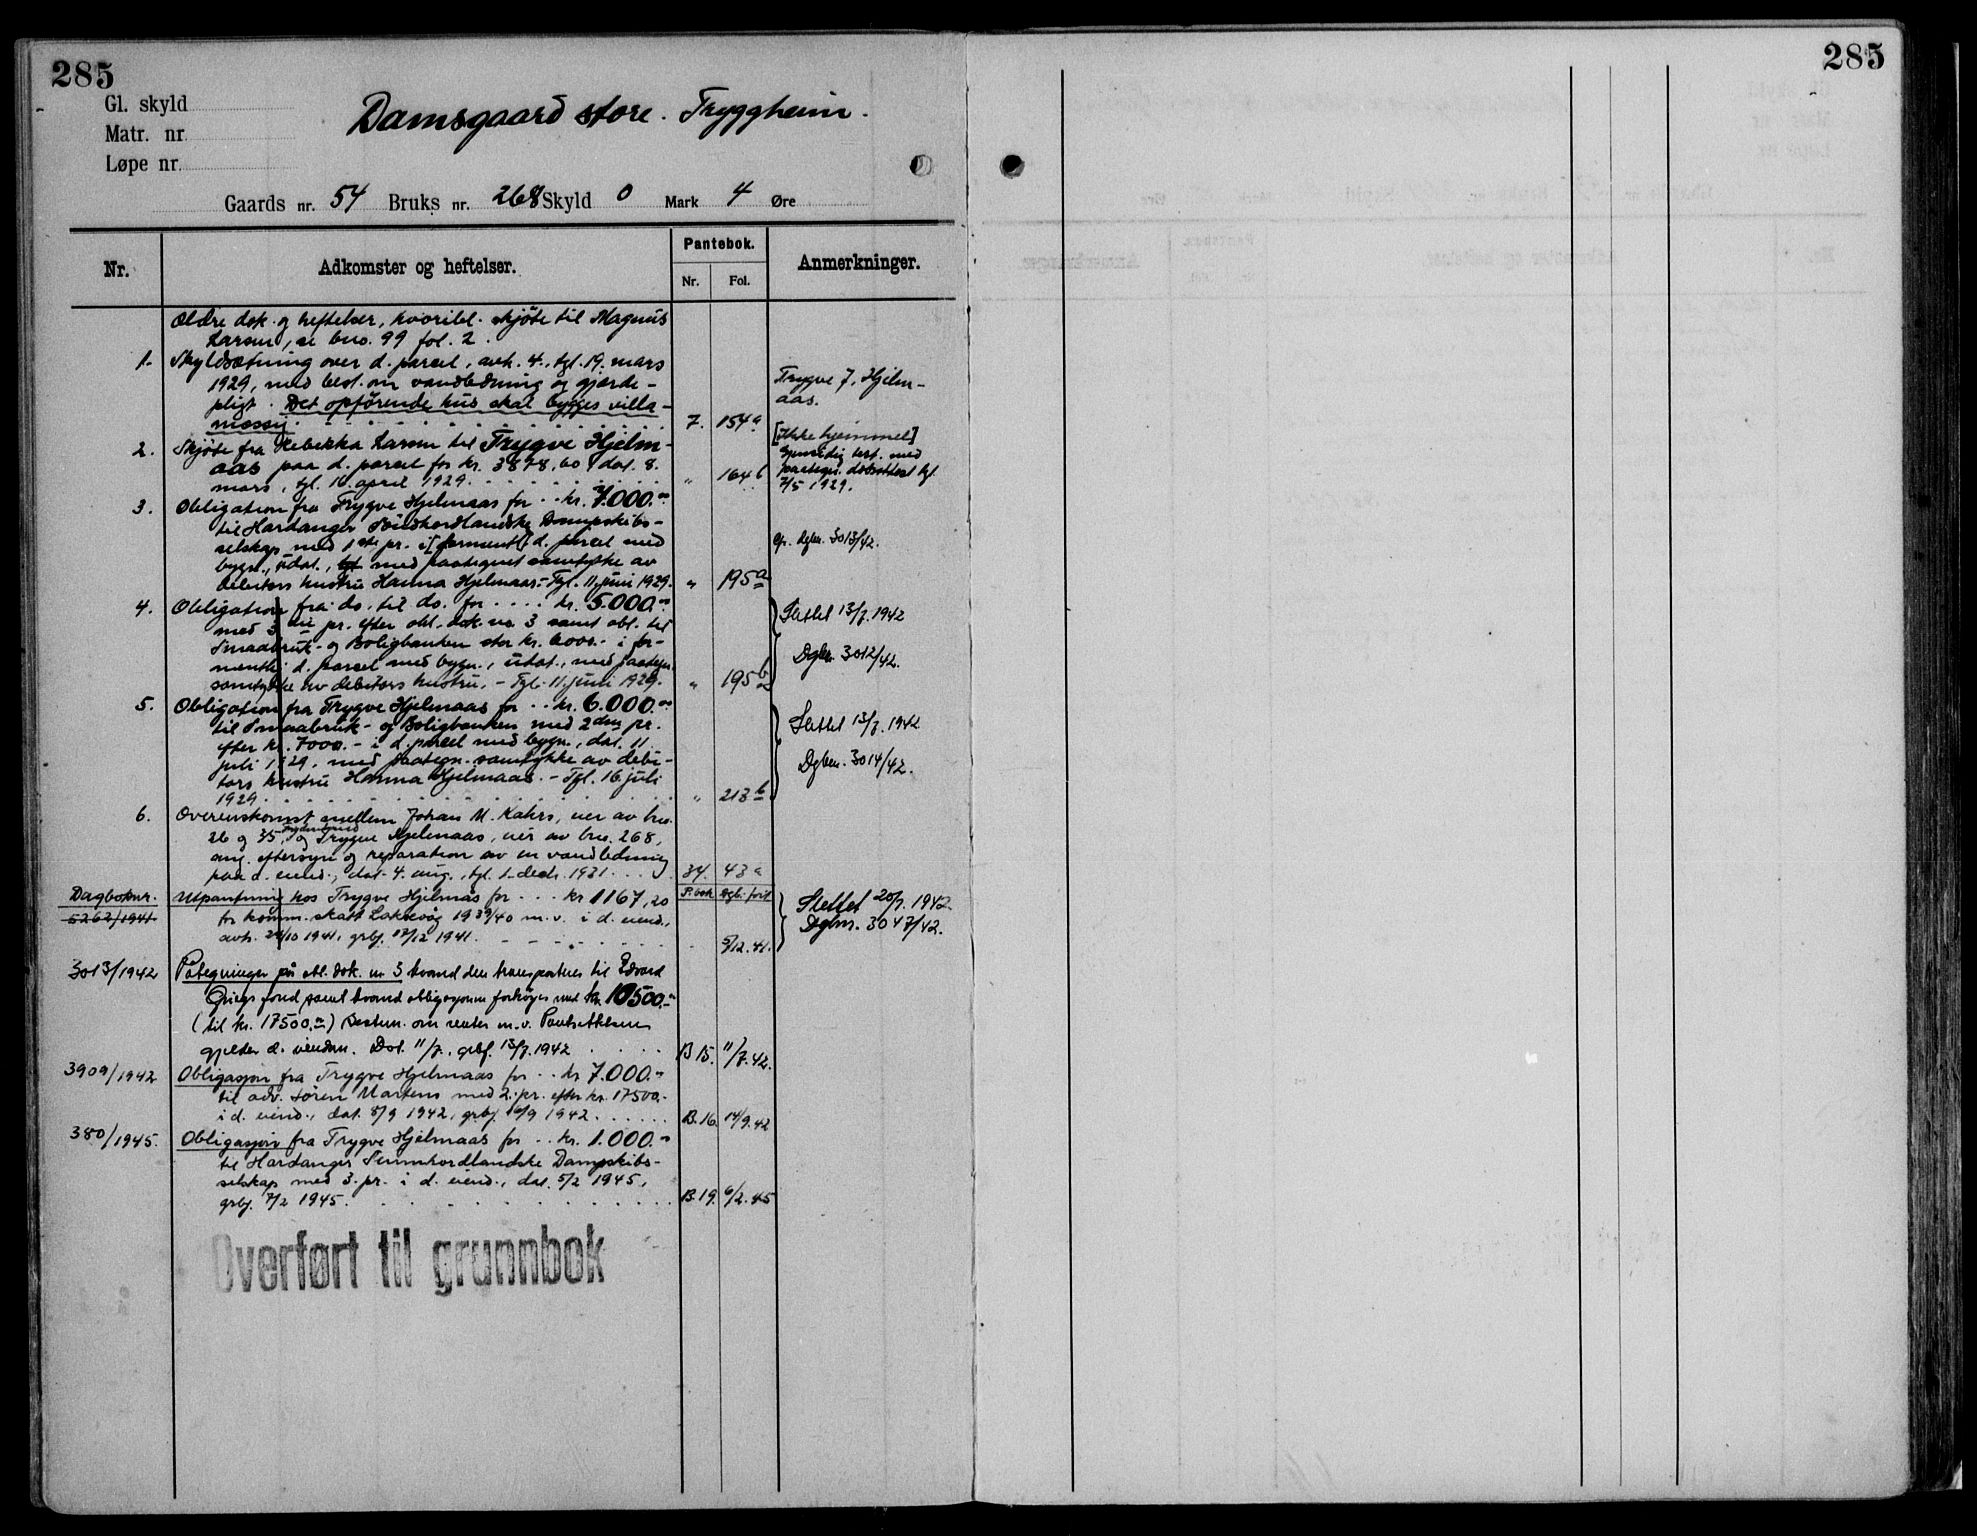 285
285
Gl. skyld
Matr. nr.
Løpe nr.
Damsgaard store. Tryggheim.
Gaards nr. 54 Bruks nr. 268 Skyld 0 Mark 4 Øre
Nr.
Adkomster og heftelser.
Pantebok.
Nr.
Fol.
Anmerkninger.
Ældre dok. og heftelser, hvoribl. skjøte til Magnus
Larsen, se bno. 99 fol. 2.
1. Skyldsætning over d. parcel, avh. 4., tgl. 19. mars
1929, med best. om vandledning og gjærde-
pligt. Det opførende hus skal bygges villa-
mæssig. 7. 154a
Trygve J. Hjelm-
aas.
2. Skjøte fra Rebekka Larsen til Trygve Hjelm-
aas paa d. parcel for kr. 3878,60, dat. 8.
mars, tgl. 16. april 1929. " 164b
[Ikke hjemmel]
Gjensidig test. med
paategn. tgl.
7/5 1929.
3. Obligation fra Trygve Hjelmaas for .. kr. 7.000.-
til Hardanger Søndhordlandske Dampskibs-
selskap med 1ste pr. i [forment] d. parcel med
bygn., udat., tgl. med paategnet samtykke av
debitors hustru Hanna Hjelmaas.- Tgl. 11. juni 1929. " 195a
cfr. dgbnr. 3013/42.
4. Obligation fra do. til do. for .... kr. 5.000.-
med 3die pr. efter obl. dok. no. 3 samt obl. til
Smaabruk- og Boligbanken stor kr. 6000.- i for-
mentlig d. parcel med bygn., udat., med paategn.
samtykke av debitors hustru. - Tgl. 11. juni 1929. " 195b
Slettet 13/7. 1942
Dgbnr. 3012/42.
5. Obligation fra Trygve Hjelmaas for .. kr. 6.000.-
til Smaabruk- og Boligbanken med 2den pr.
efter kr. 7000.- i d. parcel med bygn., dat. 11.
juli 1929, med paategn. samtykke av debi-
tors hustru Hanna Hjelmaas. - Tgl. 16. juli
1929. " 213b
Slettet 13/7. 1942
Dgbnr. 3014/42.
6. Overenskomst mellem Johan M. Kahrs, eier av bno.
26 og 35, og Trygve Hjelmaas, eier av bno. 268,
ang. eftersyn og reparation av en vandledning
paa d. eiend., dat. 4. aug., tgl. 1. decb. 1931 ... 34. 43a
Dagboknr.
5262/1941
Utpantning hos Trygve Hjelmås for ... kr 1167,20
for komm. skatt Laksevåg 1939/40 m. v. i d. eiend.,
avh. 24/10 1941, grbf. 17/12 1941.
P.bok Dgb. ført
5/12. 41.
Slettet 20/7. 1942
Dgbnr. 3047/42.
3013/1942 Påtegninger på obl. dok. nr 3 hvorved den transporteres til Edvard
Griegs fond samt hvorved obligasjonen forhøyes med kr. 10500.-
(til kr. 17500.-) Bestem. om renter m. v. Panteretten
gjelder d. eiendom. Dat. 11/7., grbf. 13/7. 1942 B 15. 11/7. 42.
3909/1942 Obligasjon fra Trygve Hjelmaas for .. kr 7.000.-
til adv. Søren Martens med 2. pr. efter kr. 17500.-
i d. eiend., dat. 8/9 1942, grbf. 16/9 1942. B. 16. 14/9. 42
380/1945. Obligasjon fra Trygve Hjelmaas for .. kr. 1.000.-
til Hardanger Sunnhordlandske Dampskibs-
selskap med 3. pr. i d. eiend., dat. 5/2 1945,
grbf. 7/2 1945. B. 19. 6/2. 45
Overført til grunnbok